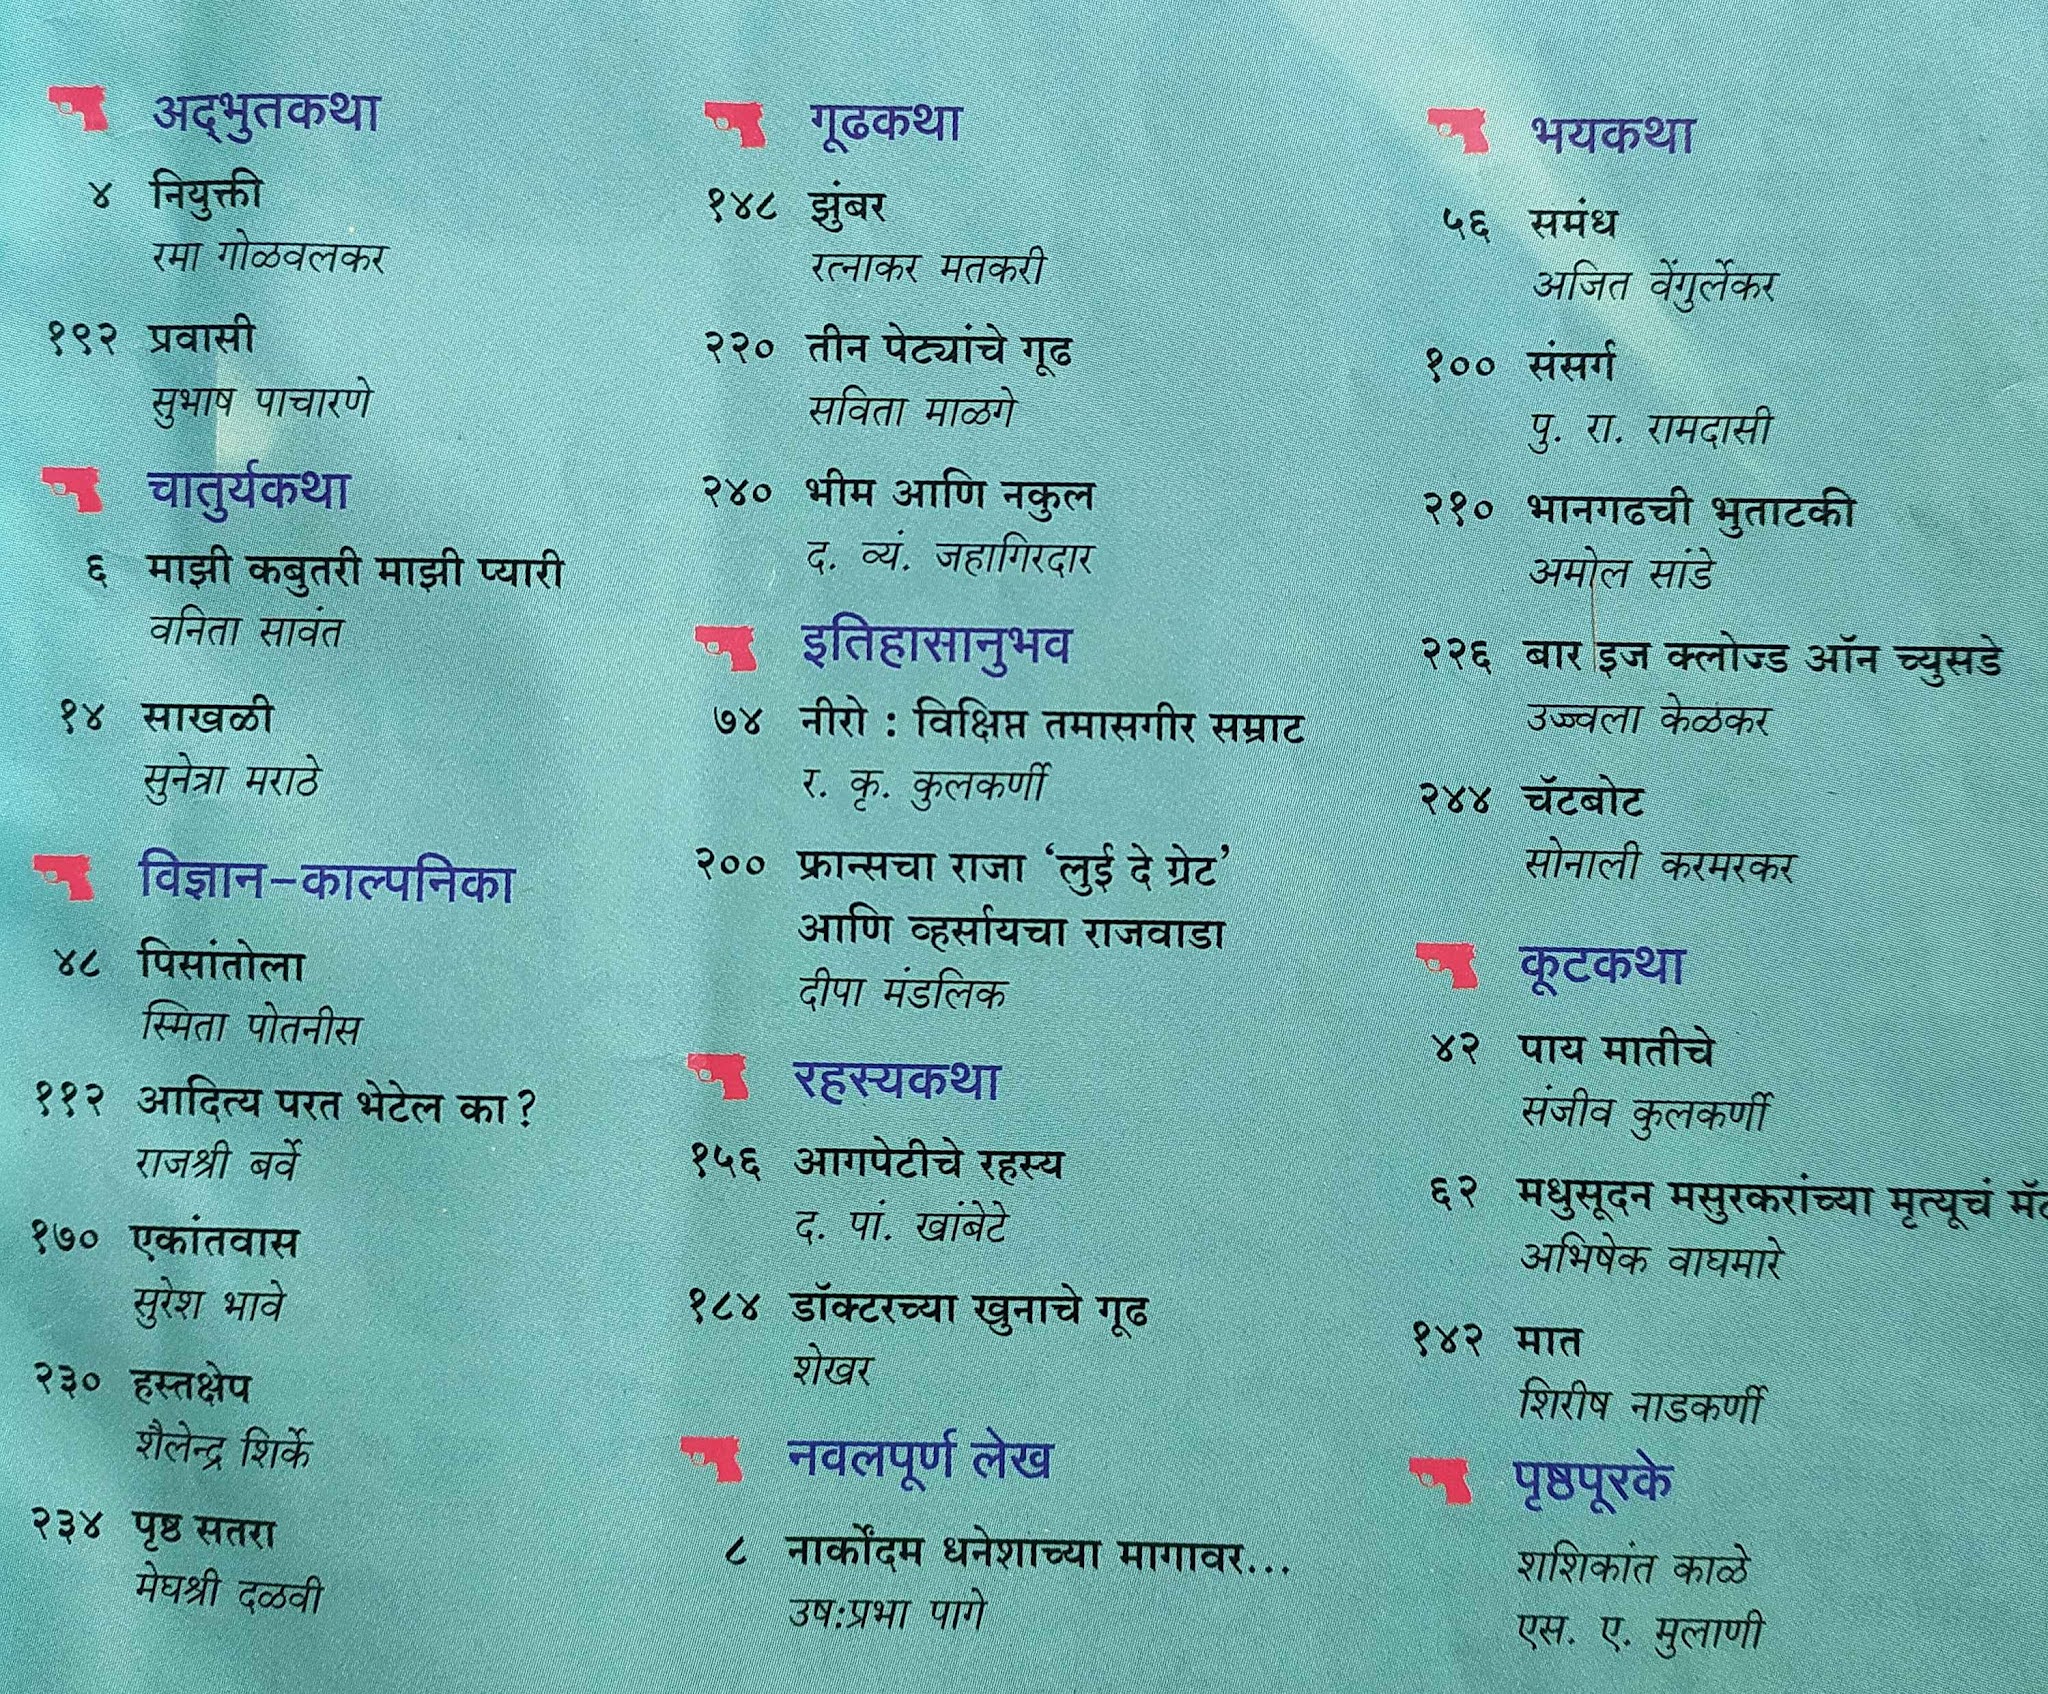 अद्‌भुतकथा
४ नियुक्ती
रमा गोळवलकर
१९२ प्रवासी
सुभाष पाचारणे
चातुर्यकथा
६ माझी कबुतरी माझी प्यारी
वनिता सावंत
१४ साखळी
सुनेत्रा मराठे
विज्ञान-काल्पनिका
४८ पिसांतोला
स्मिता पोतनीस
११२ आदित्य परत भेटेल का?
राजश्री बर्वे
१७० एकांतवास
सुरेश भावे
२३० हस्तक्षेप
शैलेन्द्र शिर्के
२३४ पृष्ठ सतरा
मेघश्री दळवी
गूढकथा
१४८ झुंबर
रत्नाकर मतकरी
२२० तीन पेट्यांचे गूढ
सविता माळगे
२४० भीम आणि नकुल
द. व्यं. जहागिरदार
इतिहासानुभव
७४ नीरो : विक्षिप्त तमासगीर सम्राट
र. कृ. कुलकर्णी
२०० फ्रान्सचा राजा ‘लुई दे ग्रेट’
आणि व्हर्सायचा राजवाडा
दीपा मंडलिक
रहस्यकथा
१५६ आगपेटीचे रहस्य
द. पां. खांबेटे
१८४ डॉक्टरच्या खुनाचे गूढ
शेखर
नवलपूर्ण लेख
८ नार्कोंदम धनेशाच्या मागावर...
उष:प्रभा पागे
भयकथा
५६ समंध
अजित वेंगुर्लेकर
१०० संसर्ग
पु. रा. रामदासी
२१० भानगढची भुताटकी
अमोल सांडे
२२६ बार इज क्लोज्ड ऑन च्युसडे
उज्ज्वला केळकर
२४४ चॅटबोट
सोनाली करमरकर
कूटकथा
४२ पाय मातीचे
संजीव कुलकर्णी
६२ मधुसूदन मसुरकरांच्या मृत्यूचं
अभिषेक वाघमारे
१४२ मात
शिरीष नाडकर्णी
पृष्ठपूरके
शशिकांत काळे
एस. ए. मुलाणी